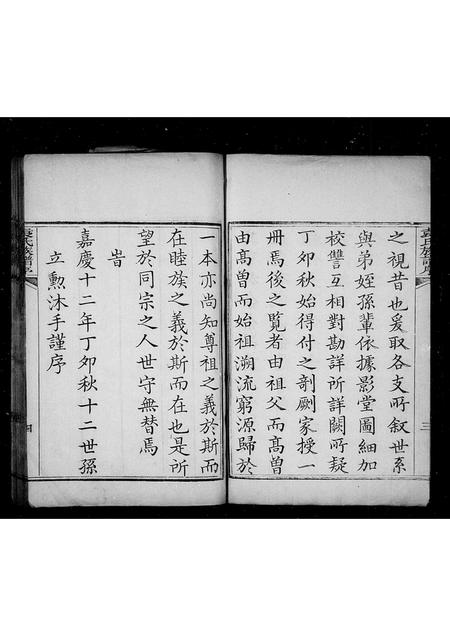 之視昔也爰取各支所叙世系
與弟姪孫輩依據影堂圖細加
校讐互相對勘詳所詳闕所疑
丁卯秋始得付之剞劂家授一
冊焉後之覽者由祖父而高曾
由高曾而始祖溯流窮源歸於
三
一本亦尚知尊祖之義於斯而
在睦族之義於斯而在也是所
望於同宗之人世守無替焉
旹
嘉慶十二年丁卯秋十二世孫
立勲沐手謹序
袁氏族譜序
四